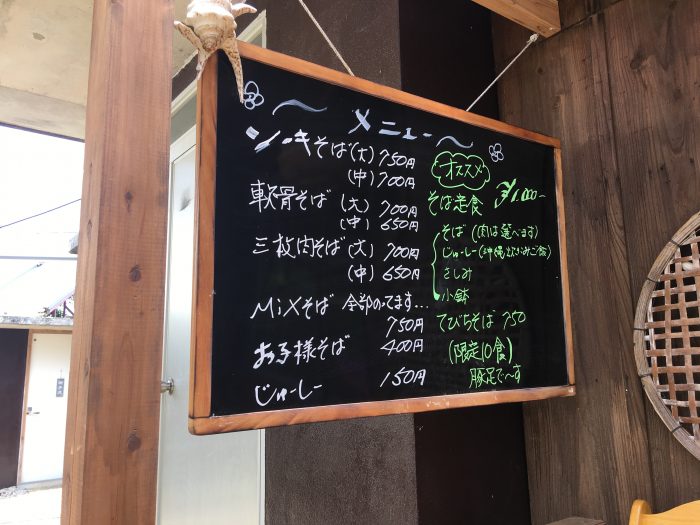 メニュー
ソーキそば(大) 750円
(中) 700円
軟骨そば (大) 700円
(中) 650円
三枚肉そば(大) 700円
(中) 650円
MiXそば 全部のってます...
750円
お子様そば 400円
じゅーしー 150円
オススメ
そば定食 ¥1,000-
そば (肉は選べます)
じゅーしー(沖縄炊きこみご飯)
さしみ
小鉢
てびちそば 750
(限定10食)
豚足で〜す